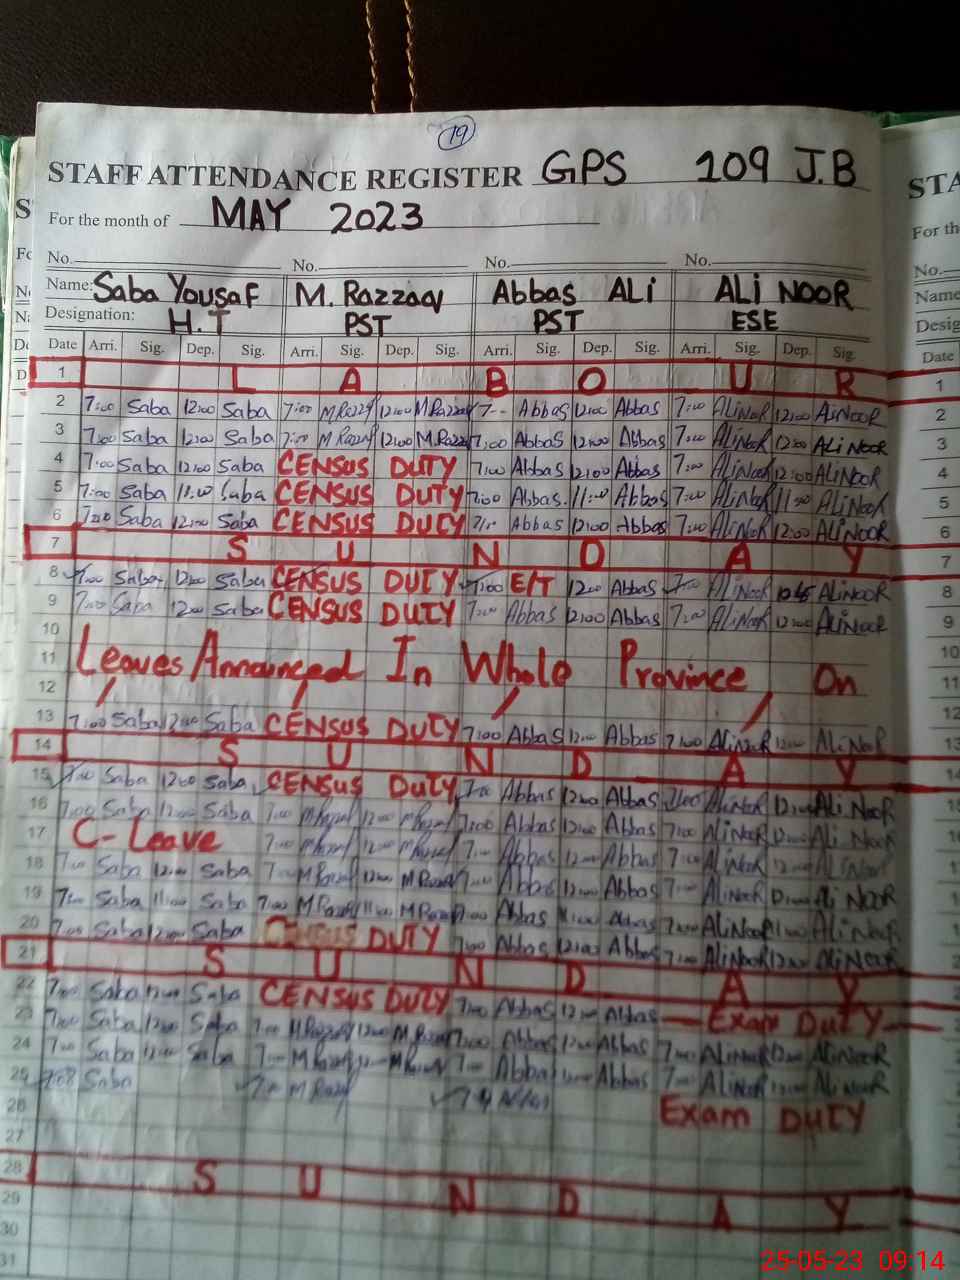 19
STAFF ATTENDANCE REGISTER GPS 109 J.B
For the month of MAY 2023
No. No. No. No.
Name: Saba Yousaf M. Razzaq Abbas ALi ALi NOOR
Designation: H.T PST PST ESE
Date Arri. Sig. Dep. Sig. Arri. Sig. Dep. Sig. Arri. Sig. Dep. Sig. Arri. Sig. Dep. Sig.
1 L A B O U R
2 7:00 Saba 12:00 Saba 7:00 M Razzaq 12:00 M Razzaq 7-- Abbas 12:00 Abbas 7:00 ALiNooR 12:00 ALiNOOR
3 7:00 Saba 12:00 Saba 7:00 M Razzaq 12:00 M.Razzaq 7:00 Abbas 12:00 Abbas 7:00 ALiNooR 12:00 ALiNOOR
4 7:00 Saba 12:00 Saba CENSUS DUTY 7:00 Abbas 12:00 Abbas 7:00 ALiNooR 12:00 ALiNOOR
5 7:00 Saba 11:00 Saba CENSUS DUTY 7:00 Abbas 11:00 Abbas 7:00 ALiNooR 11:00 ALiNOOR
6 7:00 Saba 12:00 Saba CENSUS DUTY Abbas 12:00 Abbas 7:00 ALiNooR 12:00 ALiNOOR
7 S U N D A Y
8 7:00 Saba 12:00 Saba CENSUS DUTY 7:00 E/T 12:00 Abbas 7:00 ALiNooR ALiNOOR
9 7:00 Saba 12:00 Saba CENSUS DUTY 7:00 Abbas 12:00 Abbas 7:00 ALiNooR 12:00 ALiNOOR
10
11 Leaves Announced In Whole Province On
12
13 7:00 Saba 12:00 Saba CENSUS DUTY 7:00 Abbas 12:00 Abbas 7:00 ALiNooR 12:00 ALiNooR
14 S U N D A Y
15 7:00 Saba 12:00 Saba CENSUS DUTY 7:00 Abbas 12:00 Abbas 7:00 ALiNooR 12:00 ALi NOOR
16 7:00 Saba 12:00 Saba 7:00 M Razzaq 12:00 M Razzaq 7:00 Abbas 12:00 Abbas 7:00 ALiNooR 12:00 ALi NOOR
17 C- Leave 7:00 M Razzaq 12:00 M Razzaq 7:00 Abbas 12:00 Abbas 7:00 ALiNooR 12:00 ALiNOOR
18 7:00 Saba 12:00 Saba 7:00 M Razzaq 12:00 M Razzaq 7:00 Abbas 12:00 Abbas 7:00 ALiNooR 12:00 ALi NOOR
19 7:00 Saba 11:00 Saba 7:00 M Razzaq 11:00 M Razzaq 7:00 Abbas 11:00 Abbas 7:00 ALiNooR 11:00 ALiNOOR
20 7:00 Saba 12:00 Saba CENSUS DUTY 7:00 Abbas 12:00 Abbas 7:00 ALiNooR 12:00 ALiNooR
21 S U N D A Y
22 7:00 Saba 12:00 Saba CENSUS DUTY 7:00 Abbas 12:00 Abbas Exam DUTY
23 7:00 Saba 12:00 Saba 7:00 M Razzaq 12:00 M Razzaq 7:00 Abbas 12:00 Abbas 7:00 ALiNooR 12:00 ALiNOOR
24 7:00 Saba 12:00 Saba 7:00 M Razzaq 12:00 M Razzaq 7:00 Abbas 12:00 Abbas 7:00 ALiNOOR 12:00 ALi NOOR
25 Saba M Razzaq Exam DUTY
26
27
28 S U N D A Y
29
30
31
25-05-23 09:14